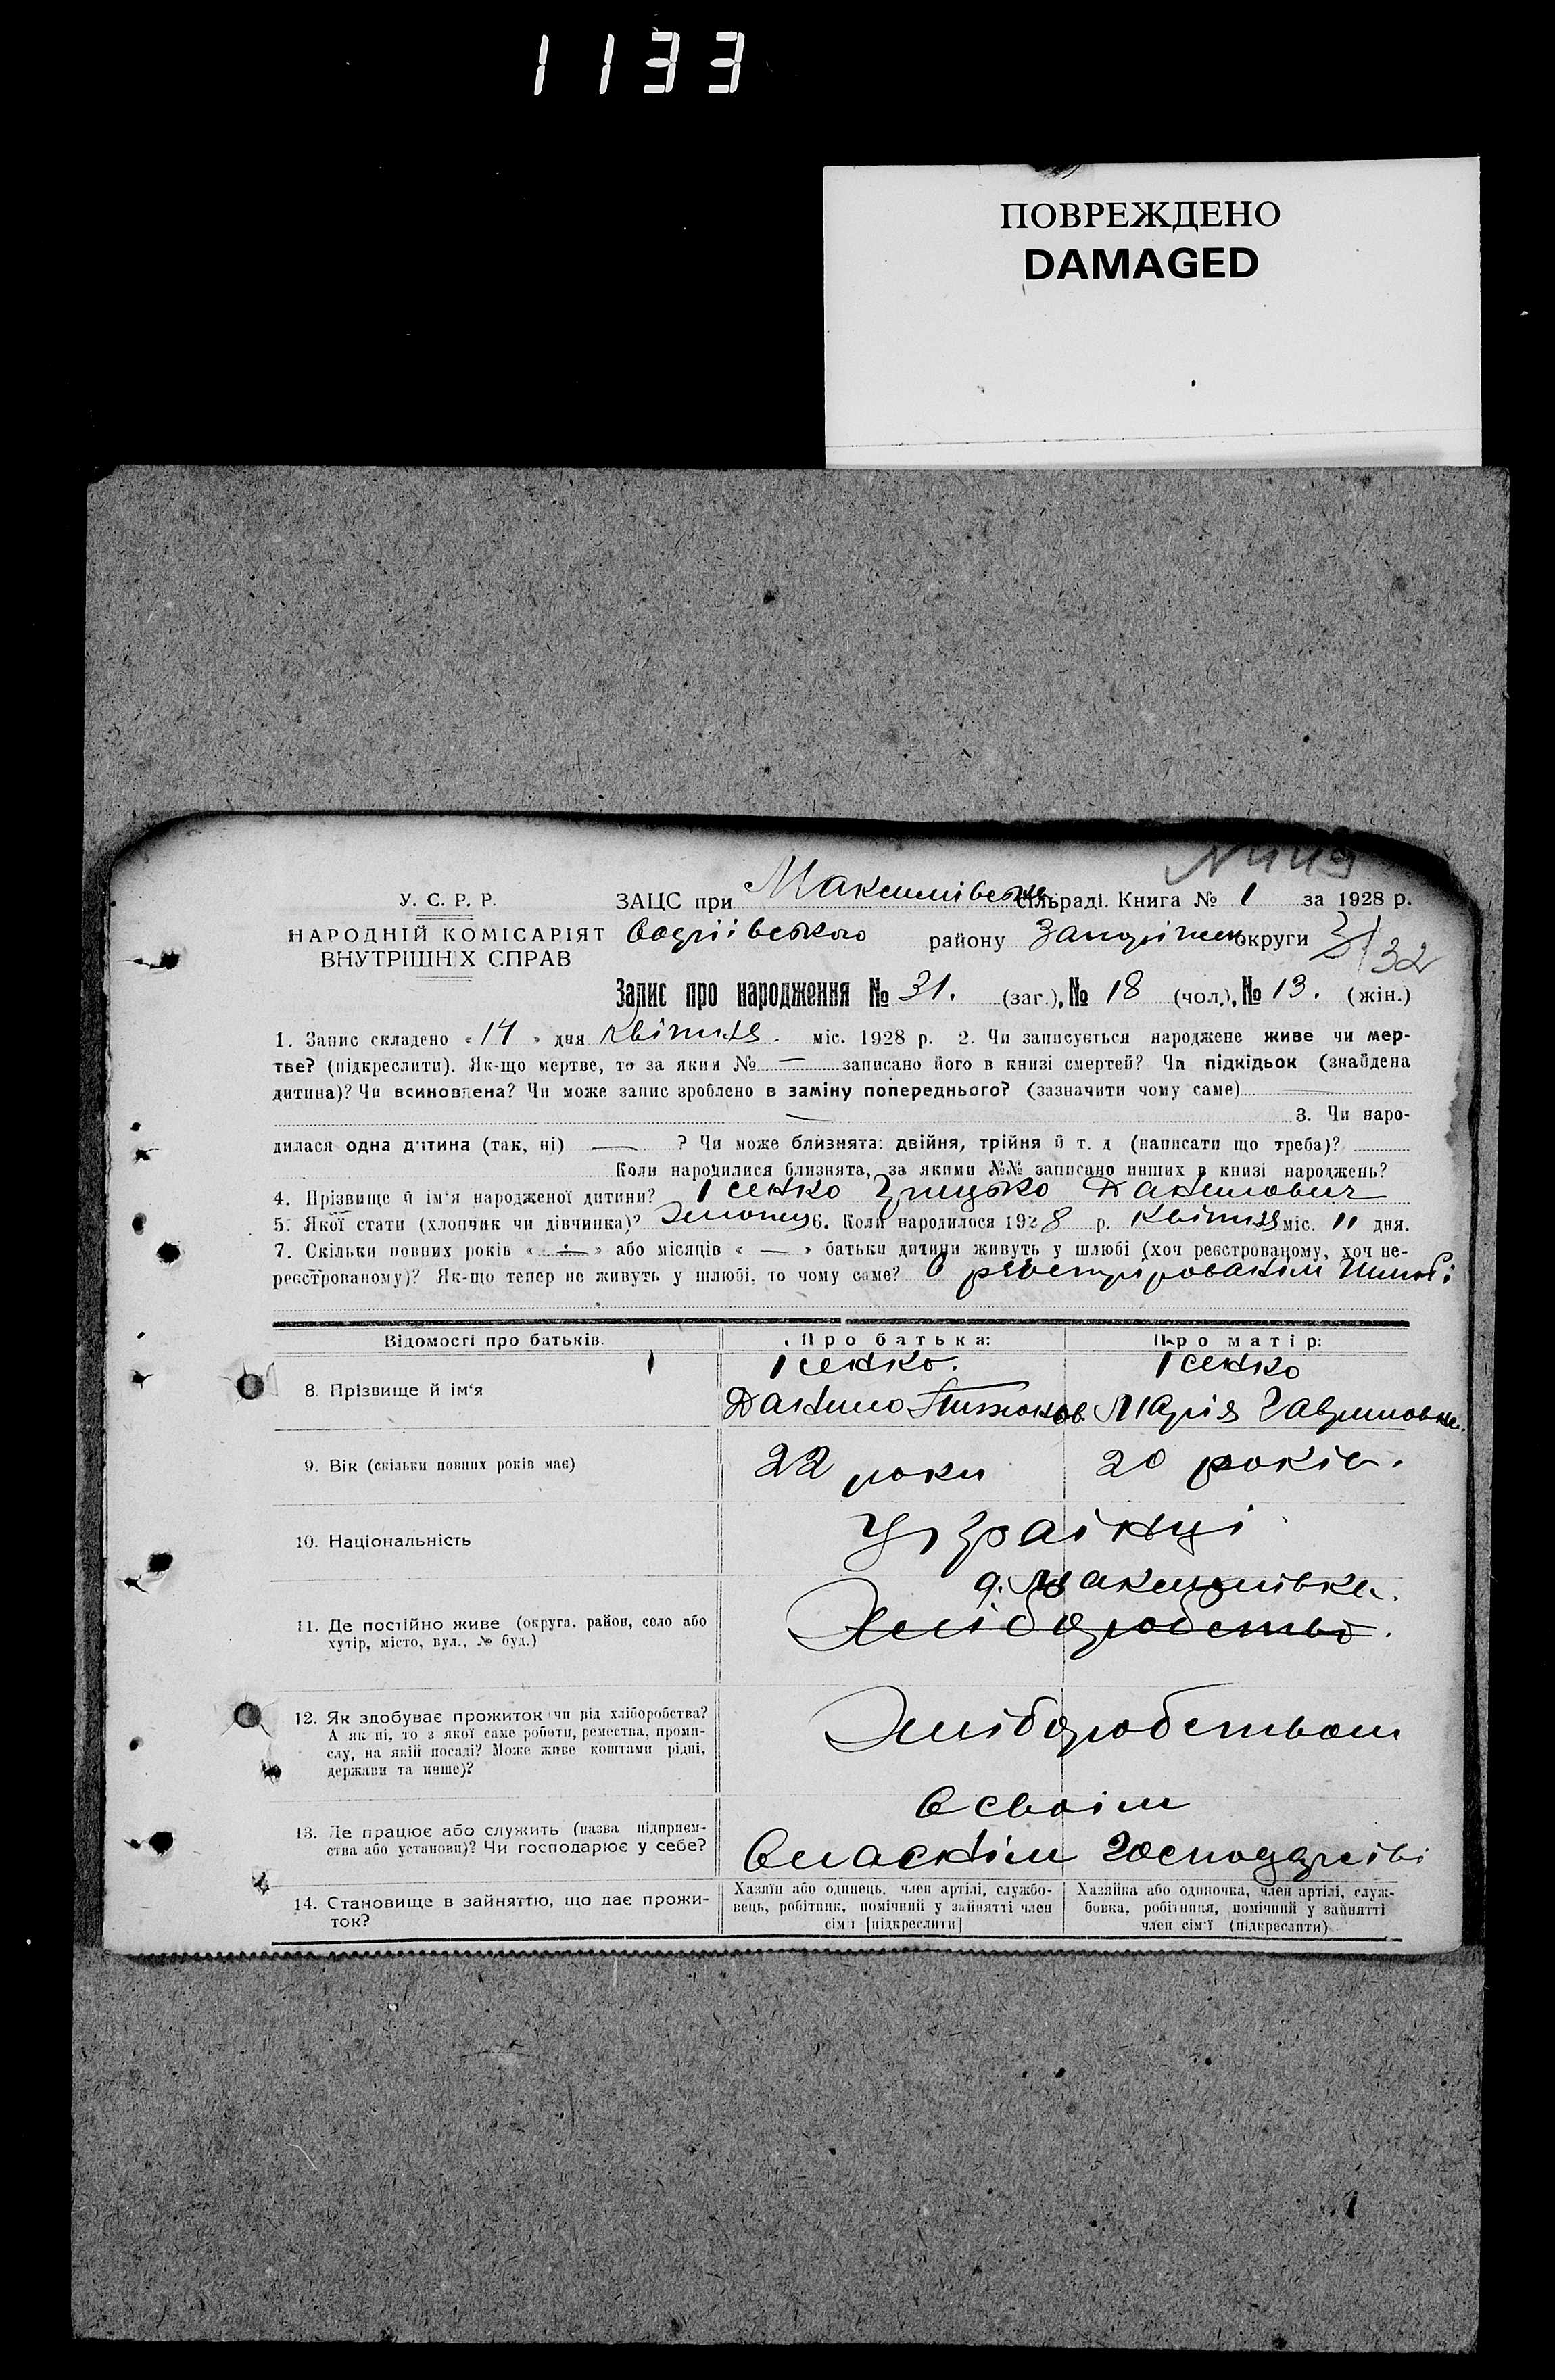 1133
ПОВРЕЖДЕНО
DAMAGED
У. С. Р. Р.
НАРОДНІЙ КОМІСАРІЯТ
ВНУТРІШНІХ СПРАВ
ЗАЦС при Максимівськ. сільраді. Книга № 1 за 1928 р.
району округи
32
Запис про народження № 31. (заг.), № 18 (чол.), № 13. (жін.)
1. Запис складено «14» дня квітня. міс. 1928 р. 2. Чи записується народжене живе чи мер-
тве? (підкреслити). Як-що мертве, то за яким № — записано його в книзі смертей? Чи підкідьок (знайдена
дитина)? Чи всиновлена? Чи може запис зроблено в заміну попереднього? (зазначити чому саме) —
— 3. Чи наро-
дилася одна дитина (так, ні) — ? Чи може близнята: двійня, трійня й т. д (написати що треба)?
Коли народилися близнята, за якими №№ записано инших в книзі народжень?
4. Прізвище й ім'я народженої дитини? Ісенко Грицько Данилович
5. Якої стати (хлопчик чи дівчинка)? Хлопец 6. Коли народилося 1928 р. квітня міс. 11 дня.
7. Скільки повних років « — » або місяців « — » батьки дитини живуть у шлюбі (хоч реєстрованому, хоч не-
реєстрованому)? Як-що тепер не живуть у шлюбі, то чому саме? В реєстрірованім шлюбі
Відомості про батьків.
Про батька:
Про матір:
8. Прізвище й ім'я
Ісенко.
Данило
Ісенко
Марія Гавриловна.
9. Вік (скільки повних років має)
22 роки
20 років.
10. Національність
Українці
11. Де постійно живе (округа, район, село або
хутір, місто, вул., № буд.)
с. Максимівка.
Хліборобство.
12. Як здобуває прожиток чи від хліборобства?
А як ні, то з якої саме роботи, ремества, проми-
слу, на якій посаді? Може живе коштами рідні,
держави та инше)?
Хліборобством
13. Де працює або служить (назва підприєм-
ства або установи)? Чи господарює у себе?
В своїм
власнім господарстві
14. Становище в зайняттю, що дає прожи-
ток?
Хазяїн або одинець, член артілі, службо-
вець, робітник, помічний у зайнятті член
сім'ї [підкреслити]
Хазяйка або одиночка, член артілі, служ-
бовка, робітниця, помічний у зайнятті
член сім'ї (підкреслити)